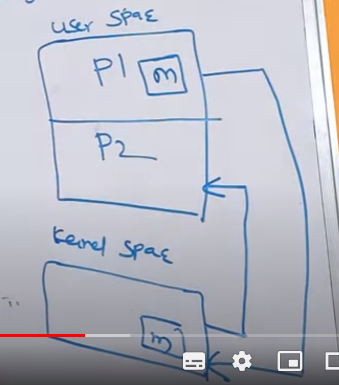 user spae
P1 m
P2
kernel spae
m